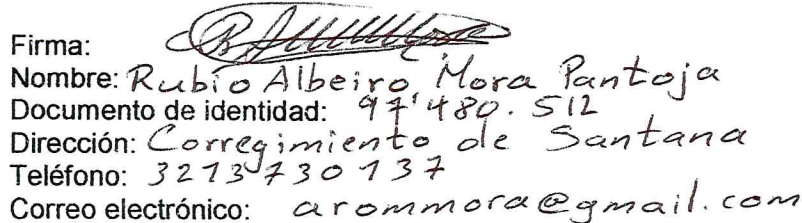 Firma:
Nombre: Rubio Albeiro Mora Pantoja
Documento de identidad: 97'480.512
Dirección: Corregimiento de Santana
Teléfono: 3213730137
Correo electrónico: arommora@gmail.com